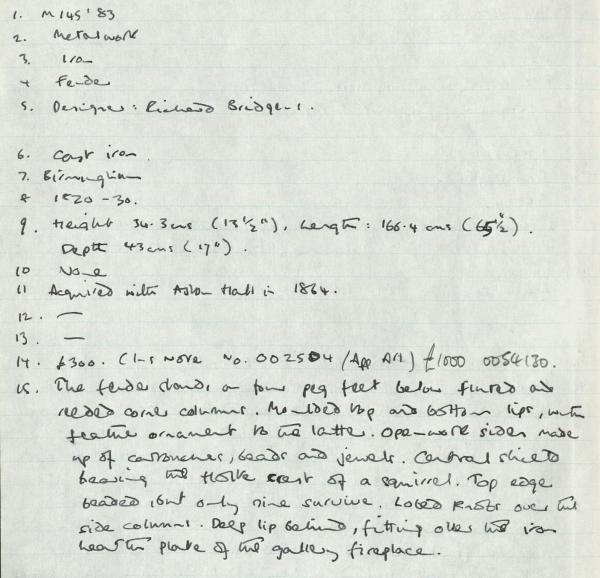 1. M145'83
2. Metalwork
3. Iron
4 Fender
5. Designer: Richard Bridgens.
6. Cast iron.
7. Birmingham
8 1820-30.
9. Height 34.3cms (13½"), Length: 166.4 cms (65½").
Depth 43cms (17").
10 None
11 Acquired with Aston Hall in 1864.
12. —
13. —
14. £300. (Ins Nove No. 002504 / App Art) £1000 0054130.
15. The fender stands on four peg feet below fluted and
reeded corner columns. Moulded top and bottom lips, with
feather ornament to the latter. Open-work sides made
up of cartouches, beads and jewels. Central shield
bearing the Holte crest of a squirrel. Top edge
beaded, but only nine survive. Lobed knobs over the
side columns. Deep lip behind, fitting over the iron
hearth plate of the gallery fireplace.